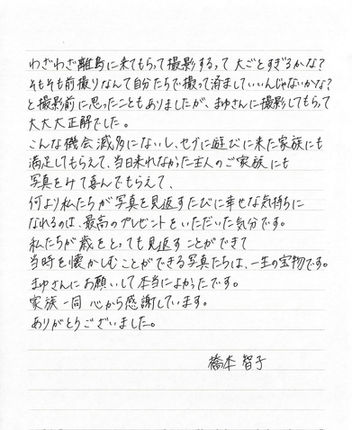 わざわざ離島に来てもらって撮影するって 大ごとすぎるかな?
そもそも前撮りなんて自分たちで撮って済ましていいんじゃないかな?
と撮影前に思ったこともありましたが、まゆさんに撮影してもらって
大大大正解でした。
こんな機会 滅多にないし、せずに遊びに来た家族にも
満足してもらえて、当日来れなかった主人のご家族にも
写真をみて喜んでもらえて、
何より私たちが写真を見返すたびに幸せな気持ちに
なれるのは、最高のプレゼントをいただいた気分です。
私たちが歳をとっても見返すことができて
当時を懐かしむことができる写真たちは、一生の宝物です。
まゆさんにお願いして本当によかったです。
家族一同 心から感謝しています。
ありがとうございました。
橋本 智子